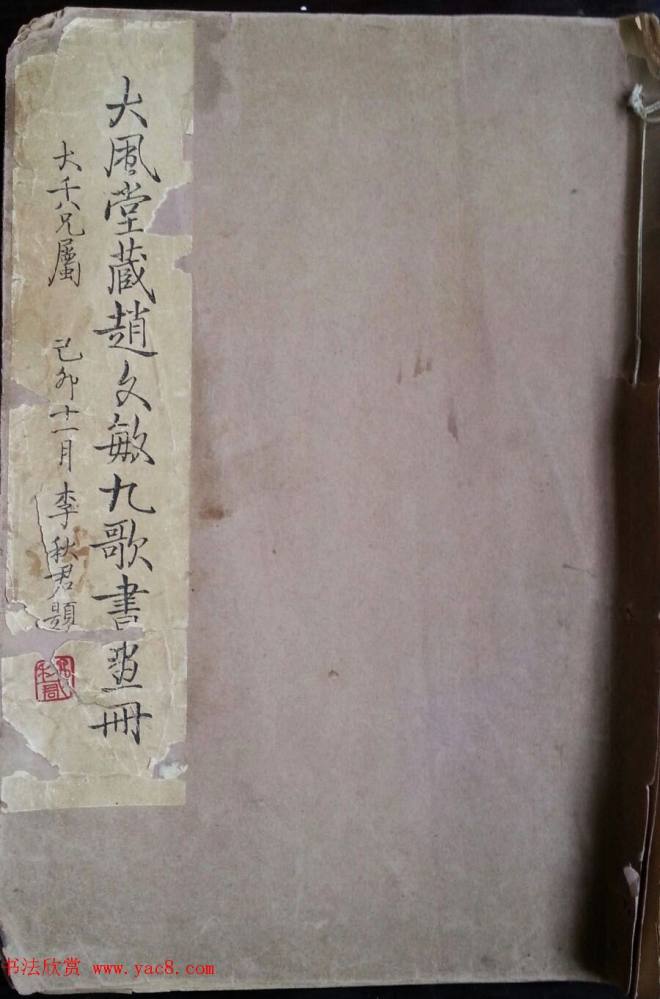 大風堂藏趙文敏九歌書畫冊
大千八兄屬
己卯十一月李秋君題
书法欣赏 www.yac8.com